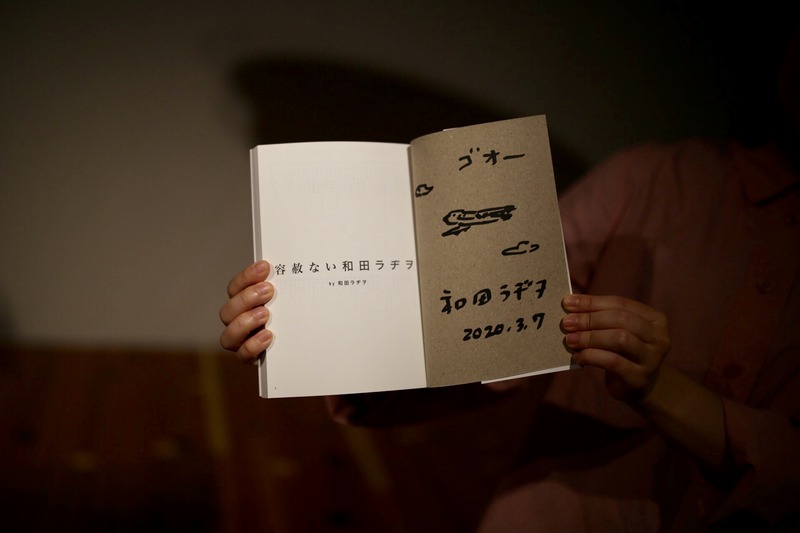 容赦ない和田ラヂヲ
by 和田ラヂヲ
ゴオー
和田ラヂヲ
2020.3.7